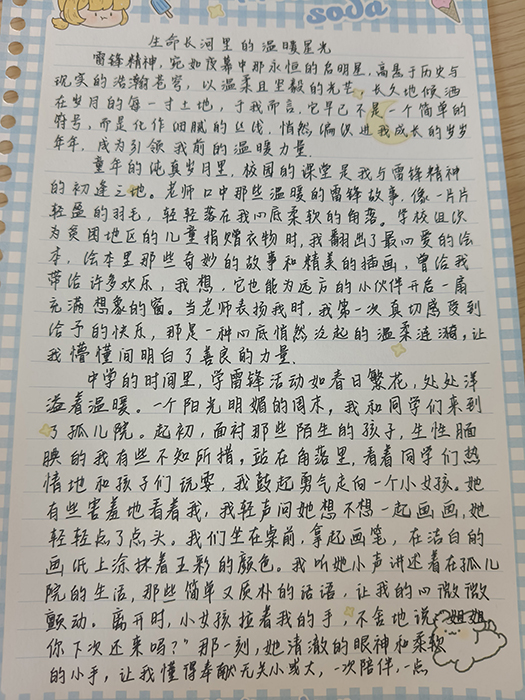 soda
生命长河里的温暖星光
雷锋精神,宛如夜幕中那永恒的启明星,高悬于历史与
现实的浩瀚苍穹,以温柔且坚毅的光芒,长久地倾洒
在岁月的每一寸土地,于我而言,它早已不是一个简单的
符号,而是化作细腻的丝线,悄然编织进我成长的岁岁
年年,成为引领我前行的温暖力量.
童年的纯真岁月里,校园的课堂是我与雷锋精神
的初逢之地。老师口中那些温暖的雷锋故事,像一片片
轻盈的羽毛,轻轻落在我心底柔软的角落。学校组织
为贫困地区的儿童捐赠衣物时,我翻出了最心爱的绘
本,绘本里那些奇妙的故事和精美的插画,曾给我
带给许多欢乐,我想,它也能为远方的小伙伴开启一扇
充满想象的窗。当老师表扬我时,我第一次真切感受到
给予的快乐,那是一种心底悄然泛起的温柔涟漪,让
我懵懂间明白了善良的力量.
中学的时间里,学雷锋活动如春日繁花,处处洋
溢着温暖。一个阳光明媚的周末,我和同学们来到
了孤儿院。起初,面对那些陌生的孩子,生性腼
腆的我有些不知所措,站在角落里,看着同学们热
情地和孩子们玩耍,我鼓起勇气走向一个小女孩。她
有些害羞地看着我,我轻声问她想不想一起画画,她
轻轻点了点头。我们坐在桌前,拿起画笔,在洁白的
画纸上涂抹着五彩的颜色。我听她小声讲述着在孤儿
院的生活,那些简单又质朴的话语,让我的心微微
颤动。离开时,小女孩拉着我的手,不舍地说"姐姐
你下次还来吗?"那一刻,她清澈的眼神和柔软
的小手,让我懂得奉献无关小或大,一次陪伴,一点